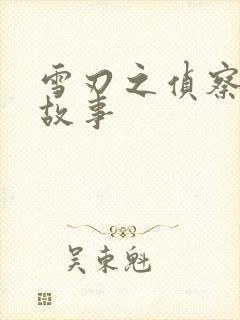 雪刃之侦察
故事
吴东魁